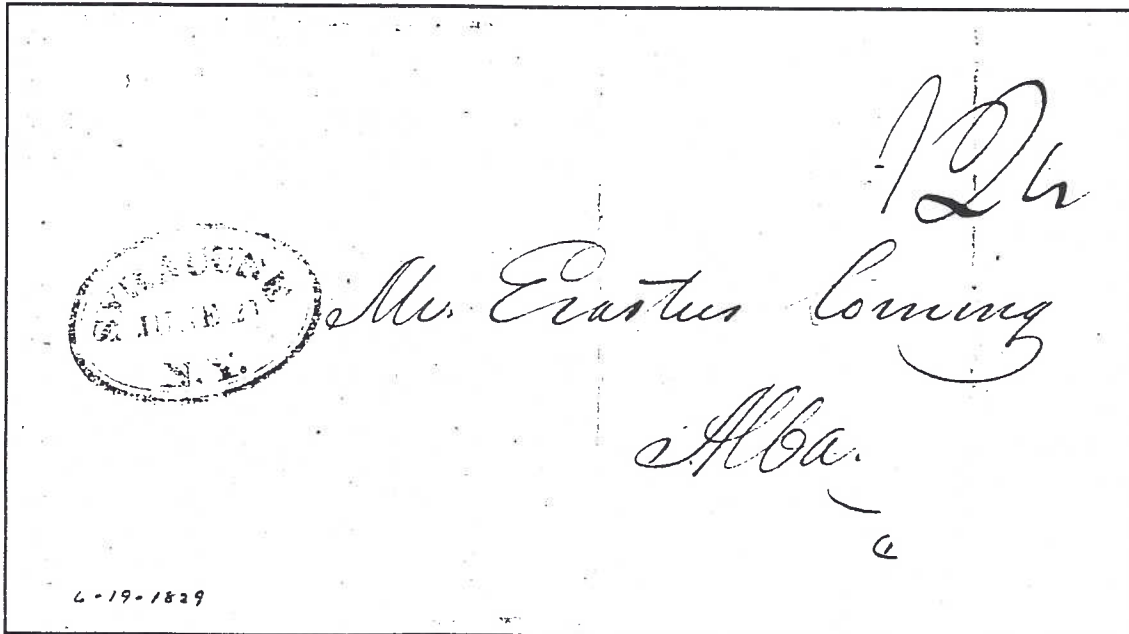 12½
SYRACUSE
JUNE 20
N.Y.
Mr. Erastus Corning
Alba.
6-19-1829